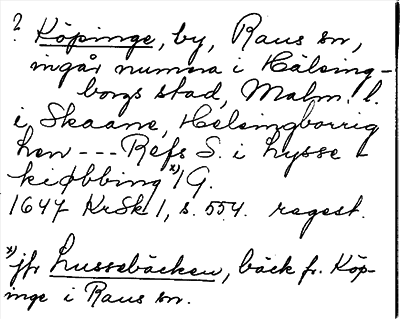 ? Köpinge, by, Raus sn,
ingår numera i Hälsing-
borgs stad, Malm. l.
i Skaane, Helsingborrig
hen --- Refs S. i Lysse-
kiøbbing *) 1 G.
1647 KrSk 1, s. 554. regest.
*) jfr Lussebäcken, bäck fr. Köp-
inge i Raus sn.